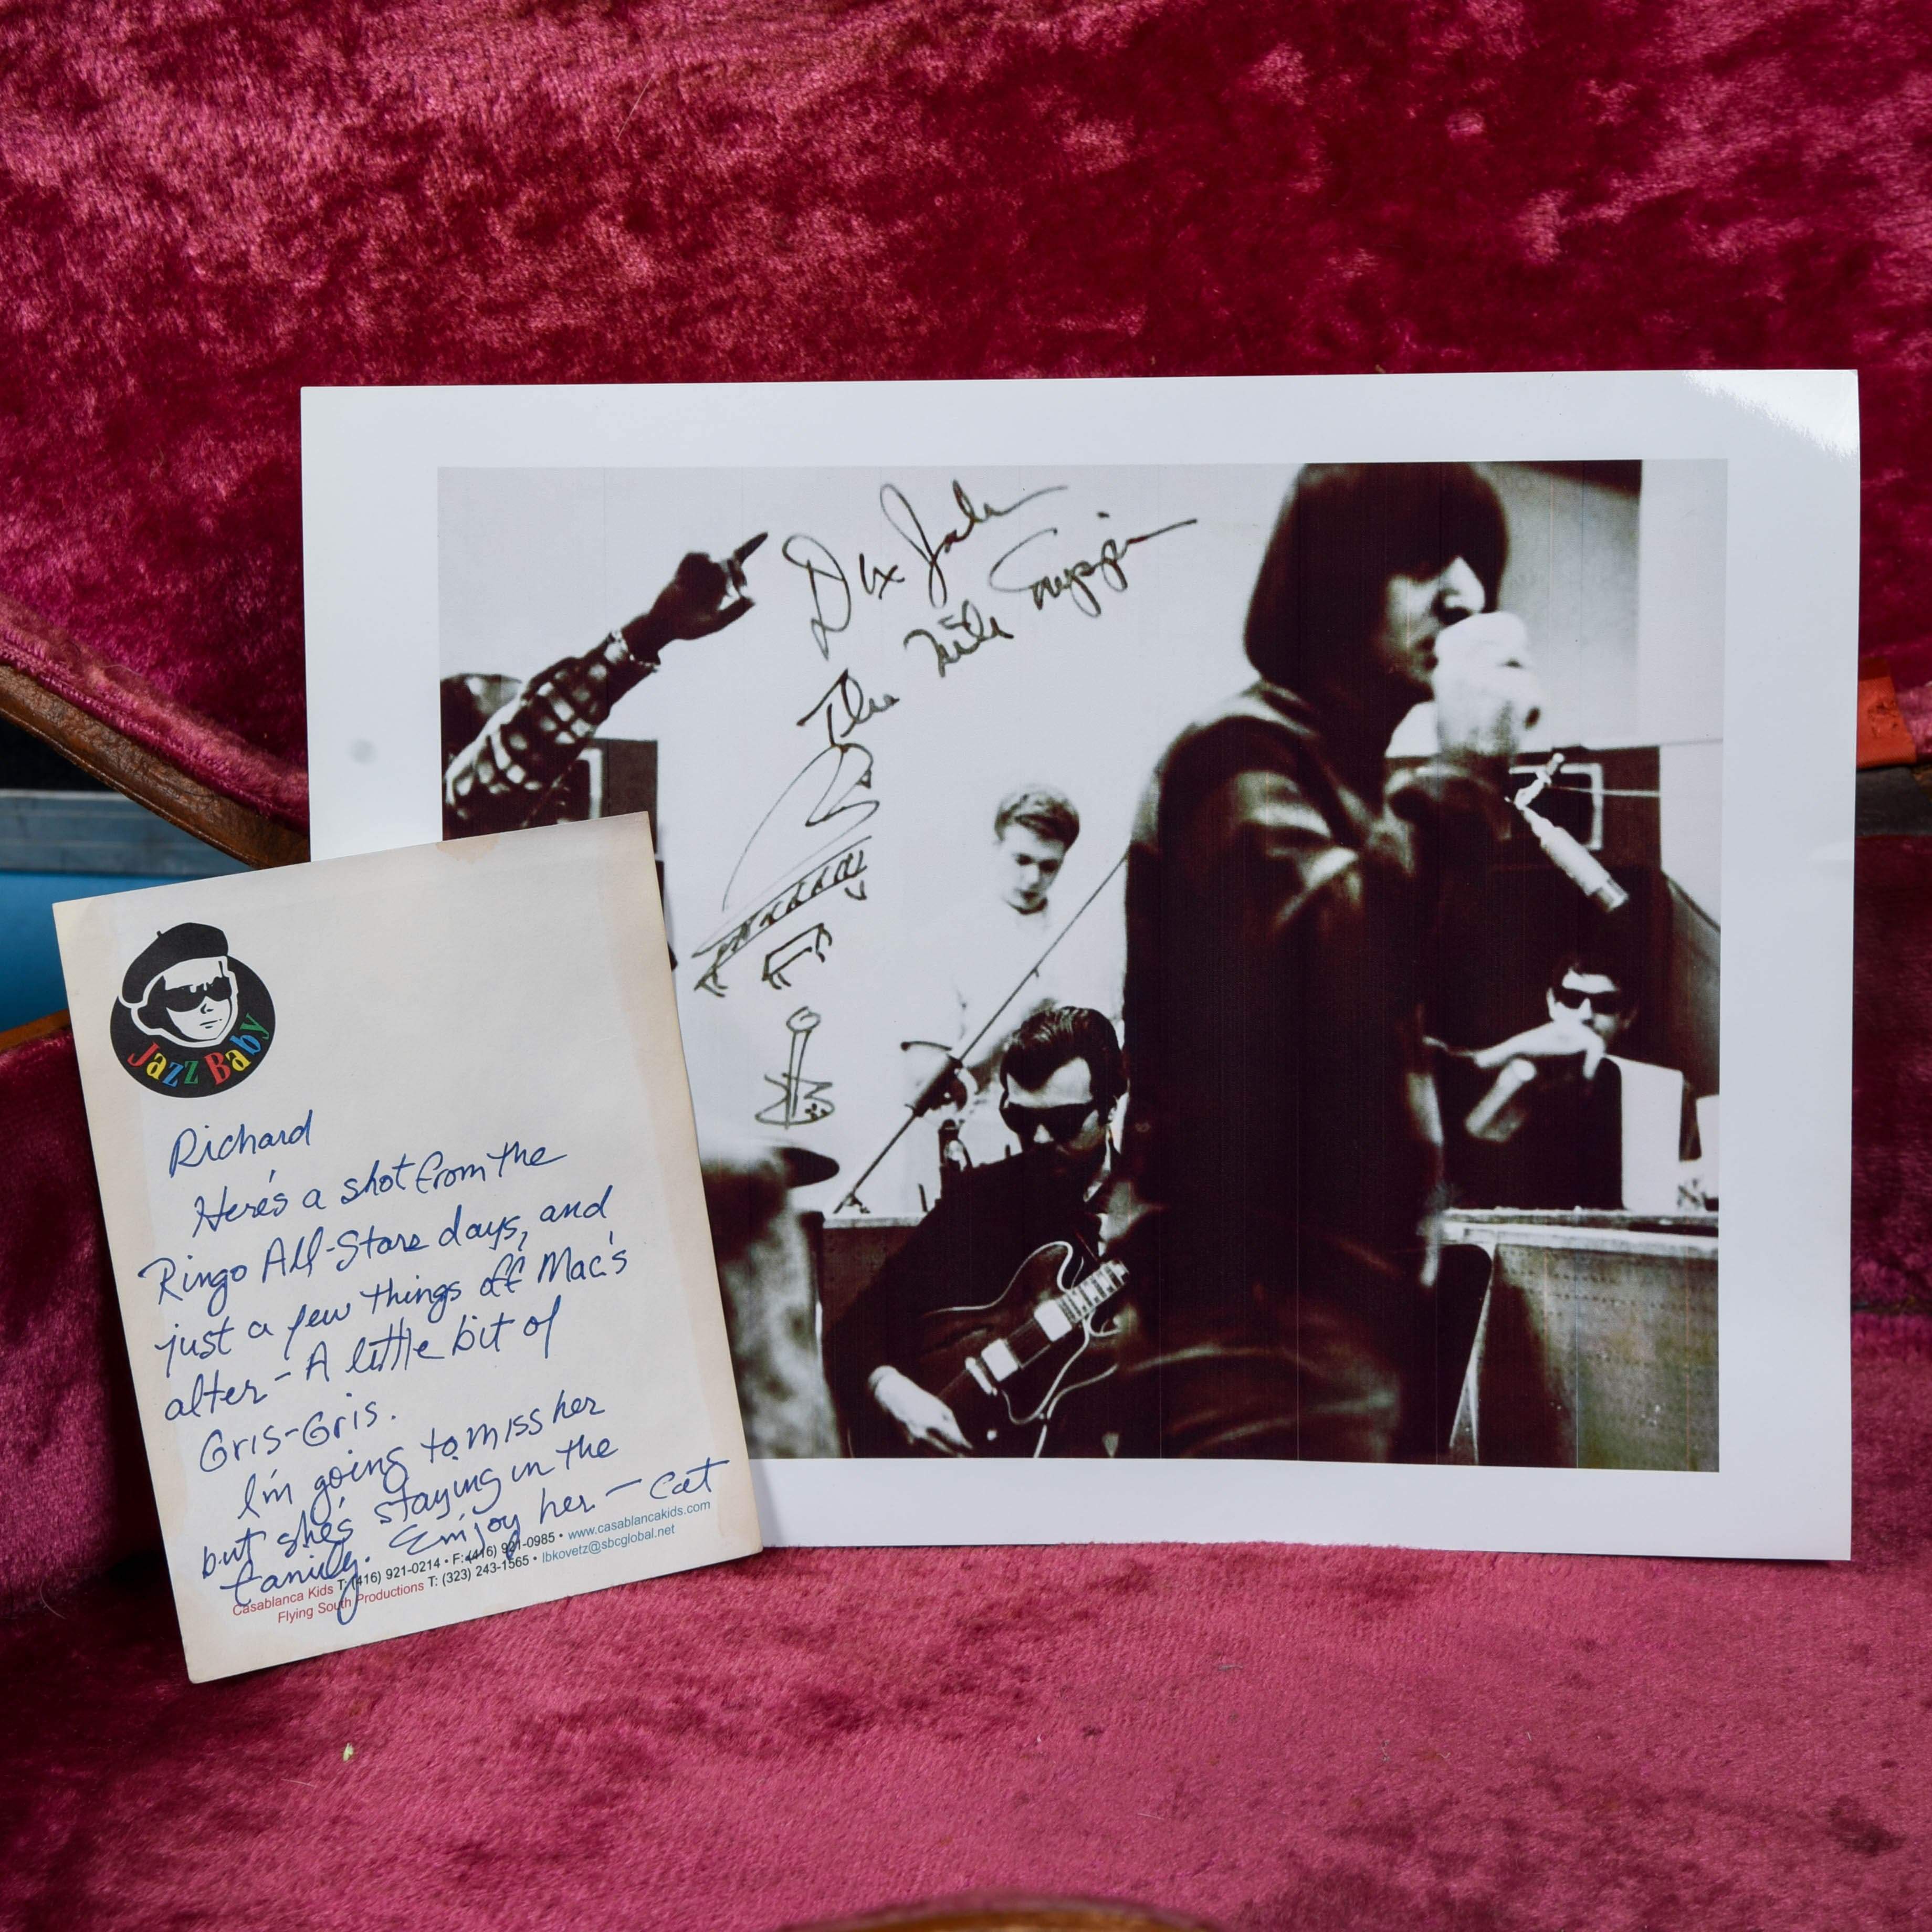 The
Jazz Baby
Richard
Here's a shot from the
Ringo All-Stars days, and
just a few things off Mac's
alter - A little bit of
Gris-Gris.
I'm going to miss her
but she's staying in the
family. Enjoy her - Cat
Casablanca Kids T: (416) 921-0214 • F: (416) 921-0985 • www.casablancakids.com
Flying South Productions T: (323) 243-1565 • lbkovetz@sbcglobal.net